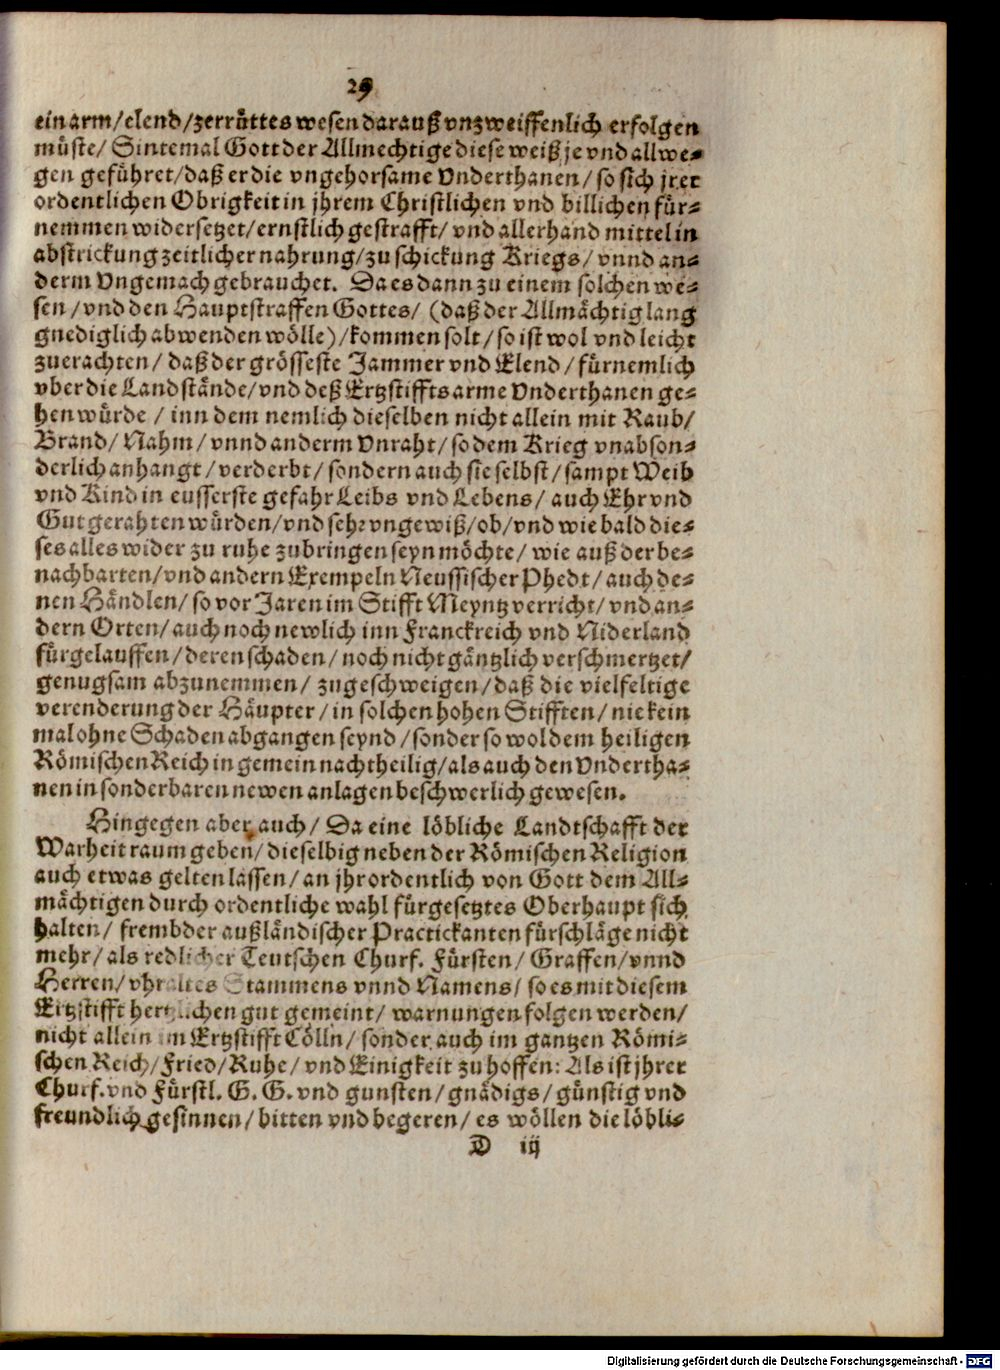 29
ein arm/elend/zerrüttes wesen darauß vnzweiffenlich erfolgen
müste/ Sintemal Gott der Allmechtige diese weiß je vnd allwe-
gen geführet/daß er die vngehorsame Vnderthanen/ so sich jrer
ordentlichen Obrigkeit in jhrem Christlichen vnd billichen für-
nemmen widersetzet/ernstlich gestrafft/ vnd allerhand mittel in
abstrickung zeitlicher nahrung/zu schickung Kriegs/ vnnd an-
derm Vngemach gebrauchet. Da es dann zu einem solchen we-
sen/vnd den Hauptstraffen Gottes/ (daß der Allmächtig lang
gnediglich abwenden wölle)/kommen solt/so ist wol vnd leicht
zuerachten/ daß der grösseste Jammer vnd Elend/fürnemlich
vber die Landstände/vnd deß Ertzstiffts arme Vnderthanen ge-
hen würde / inn dem nemlich dieselben nicht allein mit Raub/
Brand/ Nahm/ vnnd anderm Vnraht/so dem Krieg vnabson-
derlich anhangt/verderbt/sondern auch sie selbst/sampt Weib
vnd Kind in eusserste gefahr Leibs vnd Lebens/ auch Ehr vnd
Gut gerahten würden/vnd sehr vngewiß/ob/vnd wie bald die-
ses alles wider zu ruhe zubringen seyn möchte/ wie auß der be-
nachbarten/vnd andern Exempeln Neussischer Phedt/auch de-
nen Händlen/so vor Jaren im Stifft Meyntz verricht/vnd an-
dern Orten/auch noch newlich inn Franckreich vnd Niderland
fürgelauffen/deren schaden/noch nicht gäntzlich verschmertzet/
genugsam abzunemmen/ zugeschweigen/daß die vielfeltige
verenderung der Häupter/in solchen hohen Stifften/nie kein
mal ohne Schaden abgangen seynd/sonder so wol dem heiligen
Römischen Reich in gemein nachtheilig/als auch den Vndertha-
nen in sonderbaren newen anlagen beschwerlich gewesen.
Hingegen aber auch/ Da eine löbliche Landtschafft der
Warheit raum geben/dieselbig neben der Römischen Religion
auch etwas gelten lassen/an jhr ordentlich von Gott dem All-
mächtigen durch ordentliche wahl fürgesetztes Oberhaupt sich
halten/ frembder außländischer Practickanten fürschläge nicht
mehr/als redlicher Teutschen Churf. Fürsten/ Graffen/vnnd
Herren/vhraltes Stammens vnnd Namens/ so es mit diesem
Ertzstifft hertzlichen gut gemeint/ warnungen folgen werden/
nicht allein im Ertzstifft Cölln/ sonder auch im gantzen Römi-
schen Reich/Fried/Ruhe/ vnd Einigkeit zu hoffen: Als ist jhrer
Churf. vnd Fürstl. G. G. vnd gunsten/gnädigs/günstig vnd
freundlich gesinnen/bitten vnd begeren/ es wöllen die löbli-
D iij
Digitalisierung gefördert durch die Deutsche Forschungsgemeinschaft - DFG